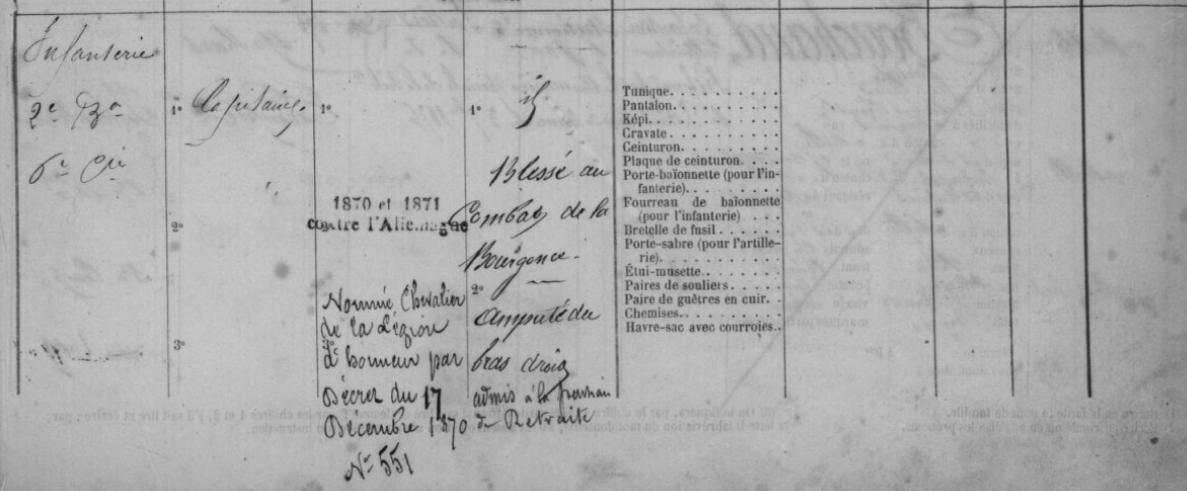 Infanterie
2e Bon
6e Cie
1° Capitaine.
2°
3°
1°
1870 et 1871
contre l'Allemagne
Nommé Chevalier
de la Légion
3°
d'honneur par
Décret du 17
Décembre 1870
N° 551
1°
Blessé au
Combat de la
Bourgonce.
2°
amputé du
bras droit
admis à la pension
de Retraite
Tunique
Pantalon
Képi
Cravate
Ceinturon
Plaque de ceinturon
Porte-baïonnette (pour l'in-
fanterie)
Fourreau de baïonnette
(pour l'infanterie)
Bretelle de fusil
Porte-sabre (pour l'artille-
rie)
Étui-musette
Paires de souliers
Paire de guêtres en cuir
Chemises
Havre-sac avec courroies